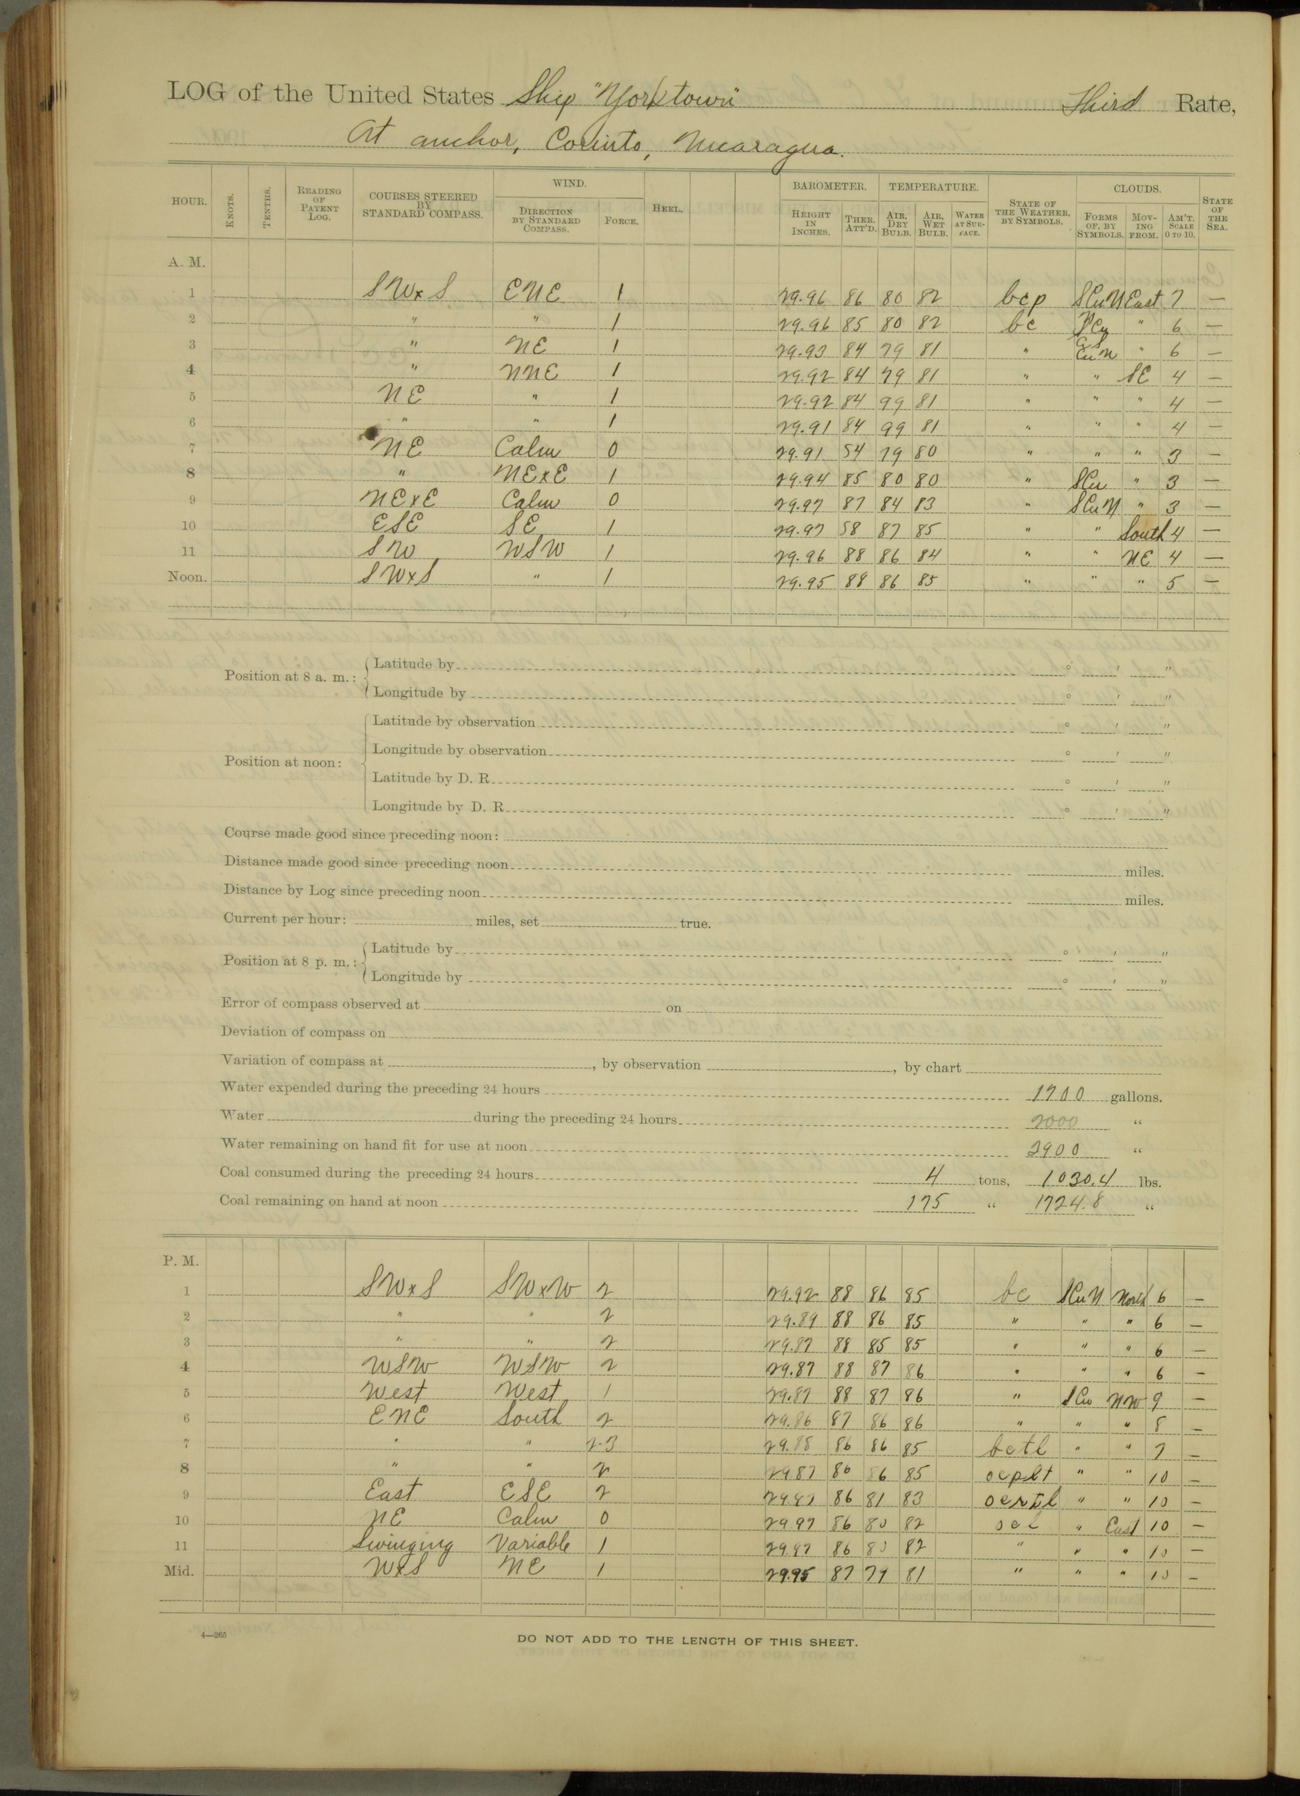 LOG of the United States Ship "Yorktown" Third Rate,
At anchor, Corinto, Nicaragua.
HOUR. KNOTS. TENTHS. READING OF PATENT LOG. COURSES STEERED BY STANDARD COMPASS. WIND. DIRECTION BY STANDARD COMPASS. FORCE. HEEL. BAROMETER. HEIGHT IN INCHES. THER. ATT'D. TEMPERATURE. AIR, DRY BULB. AIR, WET BULB. WATER AT SURFACE. STATE OF THE WEATHER, BY SYMBOLS. CLOUDS. FORMS OF, BY SYMBOLS. MOVING FROM. AM'T. SCALE 0 TO 10. STATE OF THE SEA.
A. M.
1 SWxS ENE 1 29.96 86 80 82 bcp SCuN East 7 —
2 " " 1 29.96 85 80 82 bc " 6 —
3 " NE 1 29.93 84 79 81 " CuN " 6 —
4 " NNE 1 29.92 84 79 81 " " SE 4 —
5 NE " 1 29.92 84 99 81 " " " 4 —
6 " " 1 29.91 84 99 81 " " " 4 —
7 NE Calm 0 29.91 54 79 80 " " " 3 —
8 " NExE 1 29.94 85 80 80 " SCu " 3 —
9 NExE Calm 0 29.97 87 84 83 " SCuN " 3 —
10 ESE SE 1 29.97 58 87 85 " " South 4 —
11 SW WSW 1 29.96 88 86 84 " " NE 4 —
Noon. SWxS " 1 29.95 88 86 85 " " " 5 —
Position at 8 a. m.: Latitude by ° ′ ″
Longitude by ° ′ ″
Position at noon: Latitude by observation ° ′ ″
Longitude by observation ° ′ ″
Latitude by D. R. ° ′ ″
Longitude by D. R. ° ′ ″
Course made good since preceding noon:
Distance made good since preceding noon miles.
Distance by Log since preceding noon miles.
Current per hour: miles, set true.
Position at 8 p. m.: Latitude by ° ′ ″
Longitude by ° ′ ″
Error of compass observed at on
Deviation of compass on
Variation of compass at , by observation , by chart
Water expended during the preceding 24 hours 1700 gallons.
Water during the preceding 24 hours 2000 "
Water remaining on hand fit for use at noon 2900 "
Coal consumed during the preceding 24 hours 4 tons, 1030.4 lbs.
Coal remaining on hand at noon 175 " 1724.8 "
P. M.
1 SWxS SWxW 2 29.92 88 86 85 bc SCuN North 6 —
2 " " 2 29.89 88 86 85 " " " 6 —
3 " " 2 29.87 88 85 85 " " " 6 —
4 WSW WSW 2 29.87 88 87 86 " " " 6 —
5 West West 1 29.87 88 87 86 " SCu NW 9 —
6 ENE South 2 29.86 87 86 86 " " " 8 —
7 " " 2-3 29.85 86 86 85 bctl " " 7 —
8 " " 2 29.87 86 86 85 ocplt " " 10 —
9 East ESE 2 29.87 86 81 83 " " 10 —
10 NE Calm 0 29.97 86 80 82 ocl " East 10 —
11 Swinging Variable 1 29.97 86 80 82 " " " 10 —
Mid. WxS NE 1 29.95 87 79 81 " " " 10 —
4—265
DO NOT ADD TO THE LENGTH OF THIS SHEET.